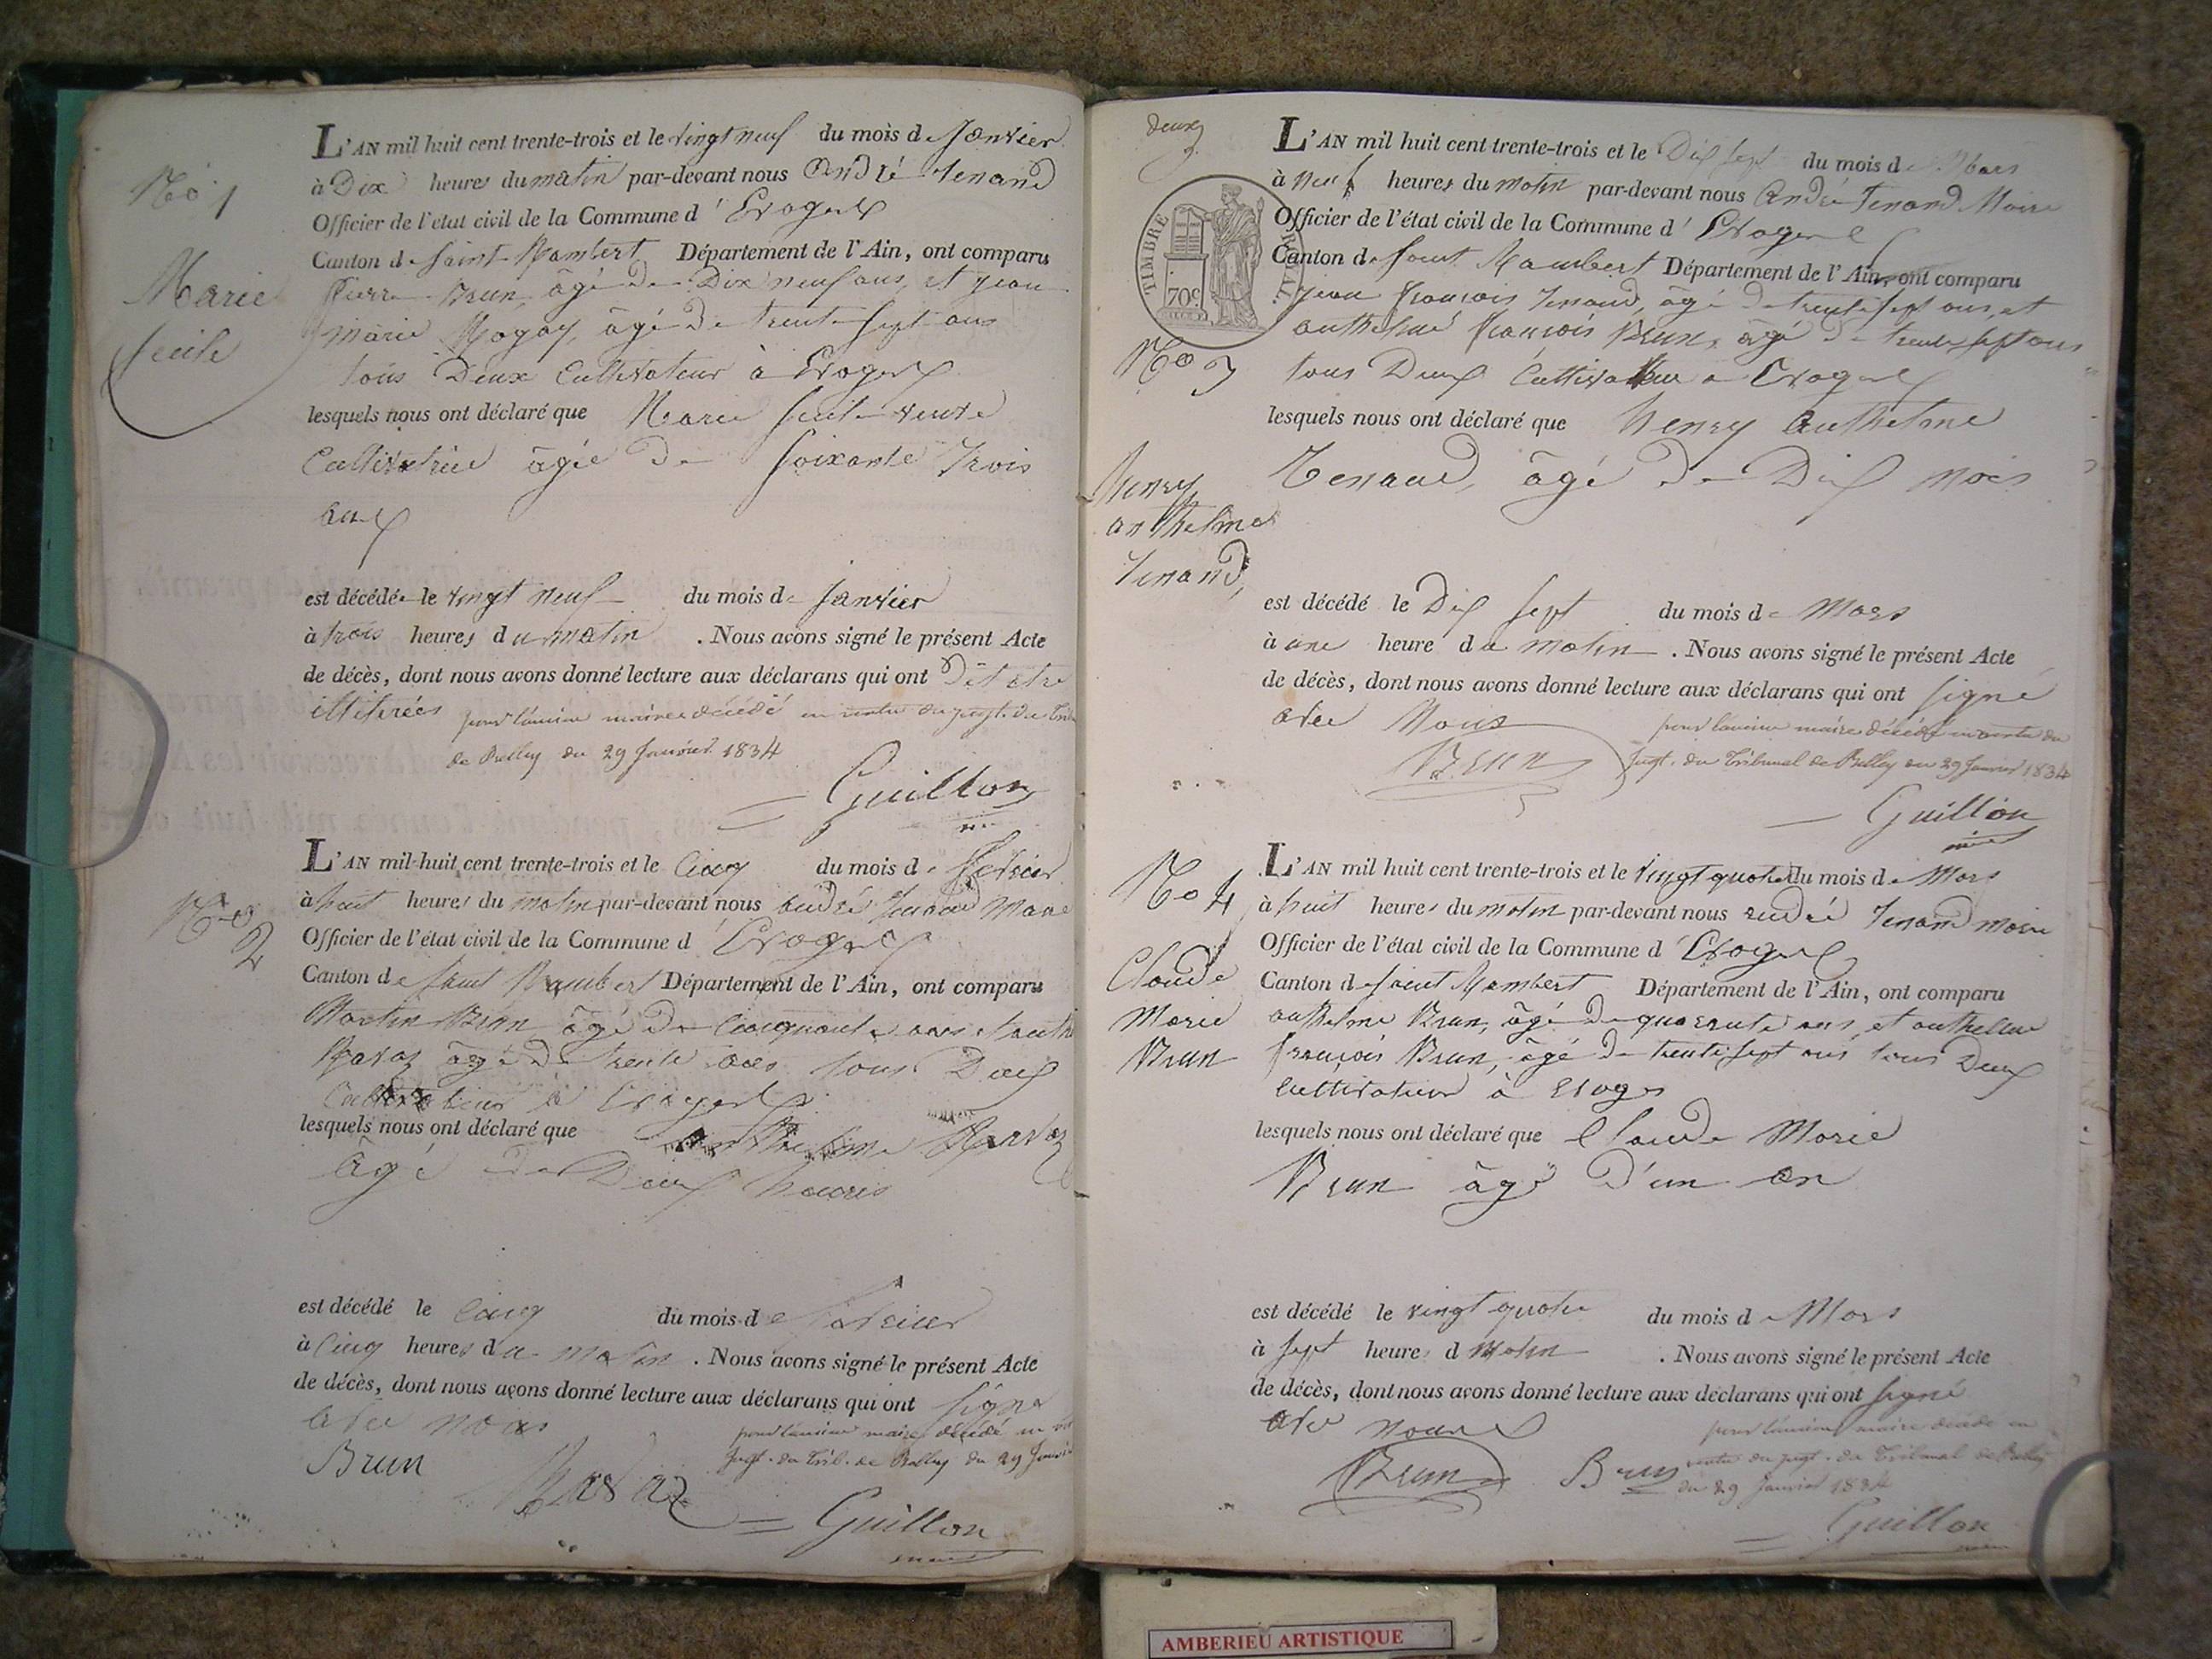 No 1
Marie
Secile
L'AN mil huit cent trente-trois et le vingt neuf du mois de Janvier
à Dix heures du matin par-devant nous André tenand
Officier de l'état civil de la Commune d' Evoges
Canton de Saint Rambert Département de l'Ain, ont comparu
Pierre Brun, âgé de Dix neuf ans, et jean
marie Rogay, âgé de trente sept ans
tous Deux Cultivateur à Evoges
lesquels nous ont déclaré que Marie Secile veuve
Cultivatrice âgée de soixante trois
ans
est décédée le vingt neuf du mois de janvier
à trois heures du matin . Nous avons signé le présent Acte
de décès, dont nous avons donné lecture aux déclarans qui ont Dit etre
illiterés pour l'ancien maire décédé en vertu du jugt. du trib
de Belley du 29 Janvier 1834
Guillon
No 2
L'AN mil huit cent trente-trois et le Cinq du mois de fevrier
à huit heures du matin par-devant nous André tenand Maire
Officier de l'état civil de la Commune d' Evoges
Canton de Saint Rambert Département de l'Ain, ont comparu
Martin Brun âgé de Cinquante ans et
Ravaz âgé de trente ans tous Deux
Cultivateur à Evoges
lesquels nous ont déclaré que anthelme Ravaz
âgé de Deux heures
est décédé le Cinq du mois de fevrier
à Cinq heures du matin . Nous avons signé le présent Acte
de décès, dont nous avons donné lecture aux déclarans qui ont signé
avec nous pour l'ancien maire décédé en
Brun jugt. du Trib. de Belley du 29 Janvier
Ravaz
Guillon
deux
TIMBRE ROYAL
70c
No 3
henry
anthelme
tenand,
L'AN mil huit cent trente-trois et le Dix sept du mois de Mars
à neuf heures du matin par-devant nous André tenand Maire
Officier de l'état civil de la Commune d' Evoges
Canton de Saint Rambert Département de l'Ain, ont comparu
jean françois tenand, âgé de trente sept ans, et
anthelme françois Brun, âgé de trente sept ans
tous Deux Cultivateur à Evoges
lesquels nous ont déclaré que henry anthelme
Tenand, âgé de Dix mois
est décédé le Dix sept du mois de Mars
à une heure du matin . Nous avons signé le présent Acte
de décès, dont nous avons donné lecture aux déclarans qui ont signé
avec Nous pour l'ancien maire décédé en vertu du
Brun jugt. du Tribunal de Belley du 29 Janvier 1834
Guillon
No 4
Claude
Marie
Brun
L'AN mil huit cent trente-trois et le vingt quatre du mois de Mars
à huit heures du matin par-devant nous andré tenand maire
Officier de l'état civil de la Commune d' Evoges
Canton de Saint Rambert Département de l'Ain, ont comparu
anthelme Brun, âgé de quarante ans, et anthelme
françois Brun, âgé de trente sept ans tous Deux
cultivateur à Evoges
lesquels nous ont déclaré que Claude Marie
Brun âgé d'un an
est décédé le vingt quatre du mois de Mars
à sept heures d matin . Nous avons signé le présent Acte
de décès, dont nous avons donné lecture aux déclarans qui ont signé
avec nous pour l'ancien maire décédé en
Brun Brun vertu du jugt. du Tribunal de Belley
du 29 Janvier 1834
Guillon
AMBERIEU ARTISTIQUE